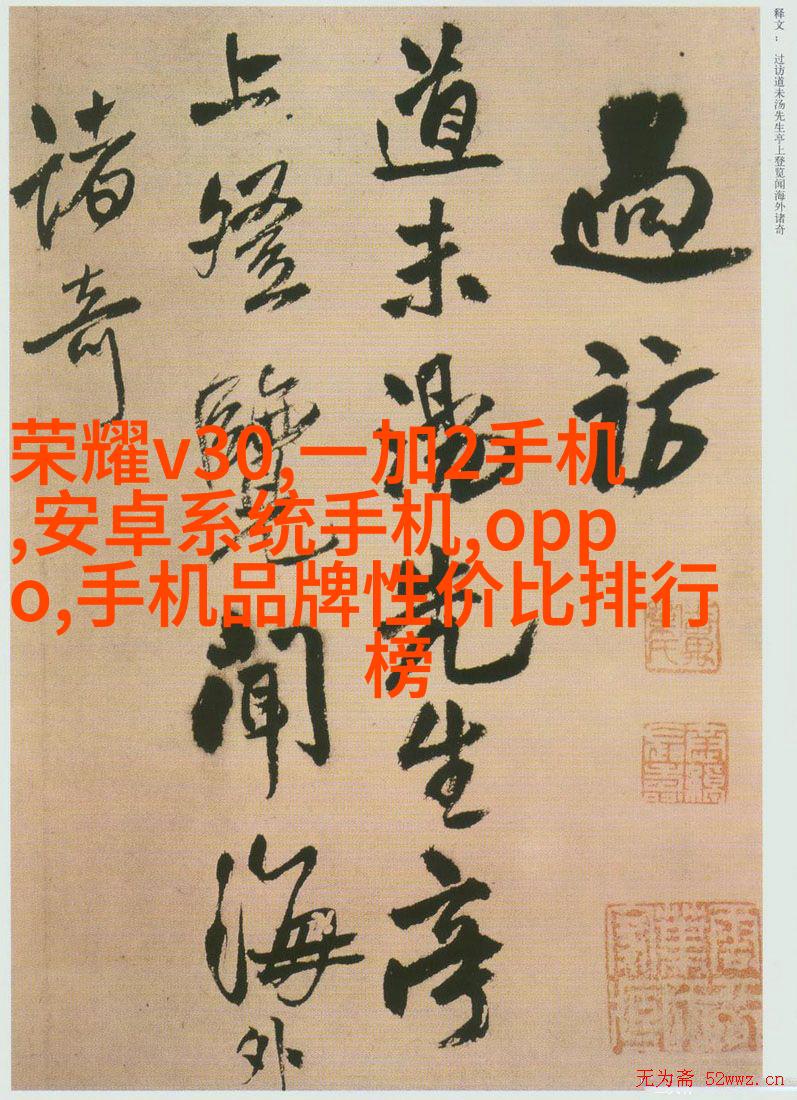 释文： 过访道未汤先生亭上登览闻海外诸奇
過訪
道未湯先生亭
上登覽聞海外
諸奇
荣耀v30,一加2手机
,安卓系统手机,opp
o,手机品牌性价比排行
榜
无为斋 52wwz.cn